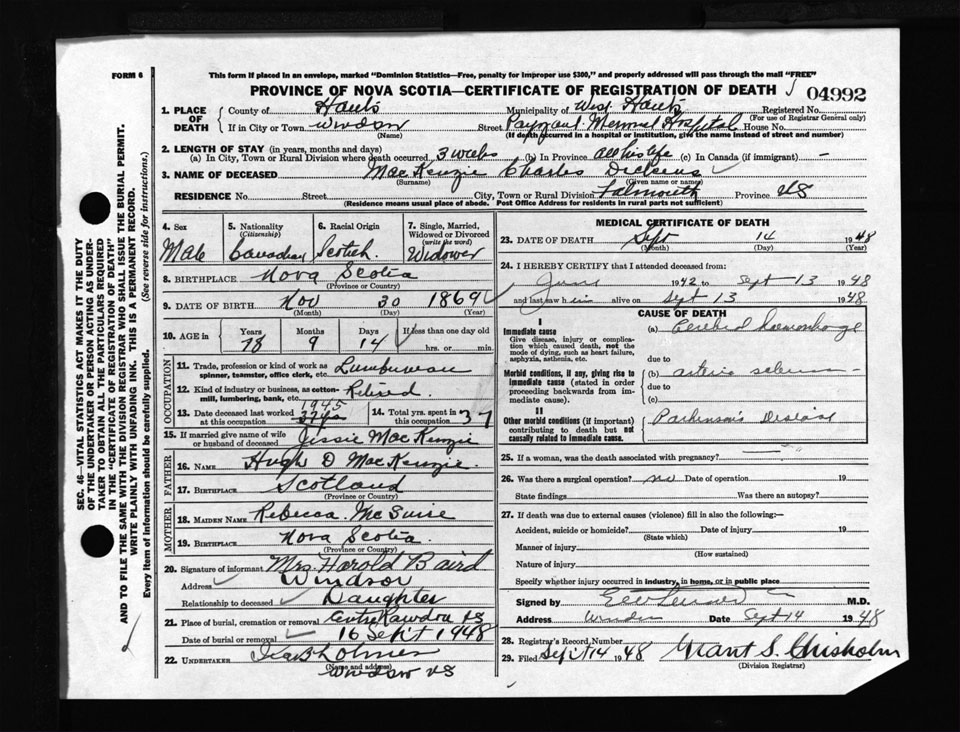 FORM 6
This form if placed in an envelope, marked "Dominion Statistics—Free, penalty for improper use $300," and properly addressed will pass through the mail "FREE"
PROVINCE OF NOVA SCOTIA—CERTIFICATE OF REGISTRATION OF DEATH
04992
SEC. 46—VITAL STATISTICS ACT MAKES IT THE DUTY
OF THE UNDERTAKER OR PERSON ACTING AS UNDER-
TAKER TO OBTAIN ALL THE PARTICULARS REQUIRED
IN THE "CERTIFICATE OF REGISTRATION OF DEATH"
AND TO FILE THE SAME WITH THE DIVISION REGISTRAR WHO SHALL ISSUE THE BURIAL PERMIT.
WRITE PLAINLY WITH UNFADING INK. THIS IS A PERMANENT RECORD.
Every item of information should be carefully supplied. (See reverse side for instructions.)
1. PLACE OF DEATH
County of Hants Municipality of West Hants Registered No.
(For use of Registrar General only)
If in City or Town Windsor Street Payzant Memorial Hospital House No.
(Name) (If death occurred in a hospital or institution, give the name instead of street and number)
2. LENGTH OF STAY (in years, months and days)
(a) In City, Town or Rural Division where death occurred 3 weeks (b) In Province all his life (c) In Canada (if immigrant) —
3. NAME OF DECEASED MacKenzie Charles Dickens
(Surname) (Given name or names)
RESIDENCE No. Street City, Town or Rural Division Falmouth Province NS
(Residence means usual place of abode. Post Office Address for residents in rural parts not sufficient)
4. Sex Male
5. Nationality (Citizenship) Canadian
6. Racial Origin Scotish
7. Single, Married, Widowed or Divorced (write the word) Widower
8. BIRTHPLACE Nova Scotia
(Province or Country)
9. DATE OF BIRTH Nov 30 1869
(Month) (Day) (Year)
10. AGE in Years 78 Months 9 Days 14 If less than one day old hrs. or min.
OCCUPATION
11. Trade, profession or kind of work as spinner, teamster, office clerk, etc. Lumberman
12. Kind of industry or business, as cotton-mill, lumbering, bank, etc. Retired
13. Date deceased last worked at this occupation 1945
14. Total yrs. spent in this occupation 37
15. If married give name of wife or husband of deceased Jessie MacKenzie
FATHER
16. NAME Hugh D MacKenzie
17. BIRTHPLACE Scotland
(Province or Country)
MOTHER
18. MAIDEN NAME Rebecca McGuire
19. BIRTHPLACE Nova Scotia
(Province or Country)
20. Signature of informant Mrs. Harold Baird
Address Windsor
Relationship to deceased Daughter
21. Place of burial, cremation or removal Centre Rawdon NS
Date of burial or removal 16 Sept 1948
22. UNDERTAKER Holmes
(Name and address)
Windsor NS
MEDICAL CERTIFICATE OF DEATH
23. DATE OF DEATH Sept 14 1948
(Month) (Day) (Year)
24. I HEREBY CERTIFY that I attended deceased from:
June 1942 to Sept 13 1948
and last saw him alive on Sept 13 1948
CAUSE OF DEATH
I
Immediate cause
Give disease, injury or complication which caused death, not the mode of dying, such as heart failure, asphyxia, asthenia, etc.
(a) Cerebral haemorrhage
due to
Morbid conditions, if any, giving rise to immediate cause (stated in order proceeding backwards from immediate cause).
(b) arterio sclerosis
due to
(c)
II
Other morbid conditions (if important) contributing to death but not causally related to immediate cause.
Parkinson's Disease
25. If a woman, was the death associated with pregnancy?
26. Was there a surgical operation? no Date of operation 19
State findings Was there an autopsy?
27. If death was due to external causes (violence) fill in also the following:—
Accident, suicide or homicide? Date of injury 19
(State which)
Manner of injury
(How sustained)
Nature of injury
Specify whether injury occurred in industry, in home, or in public place
Signed by M.D.
Address Windsor Date Sept 14 1948
28. Registrar's Record Number
29. Filed Sept 14 1948 Grant S. Chisholm
(Division Registrar)